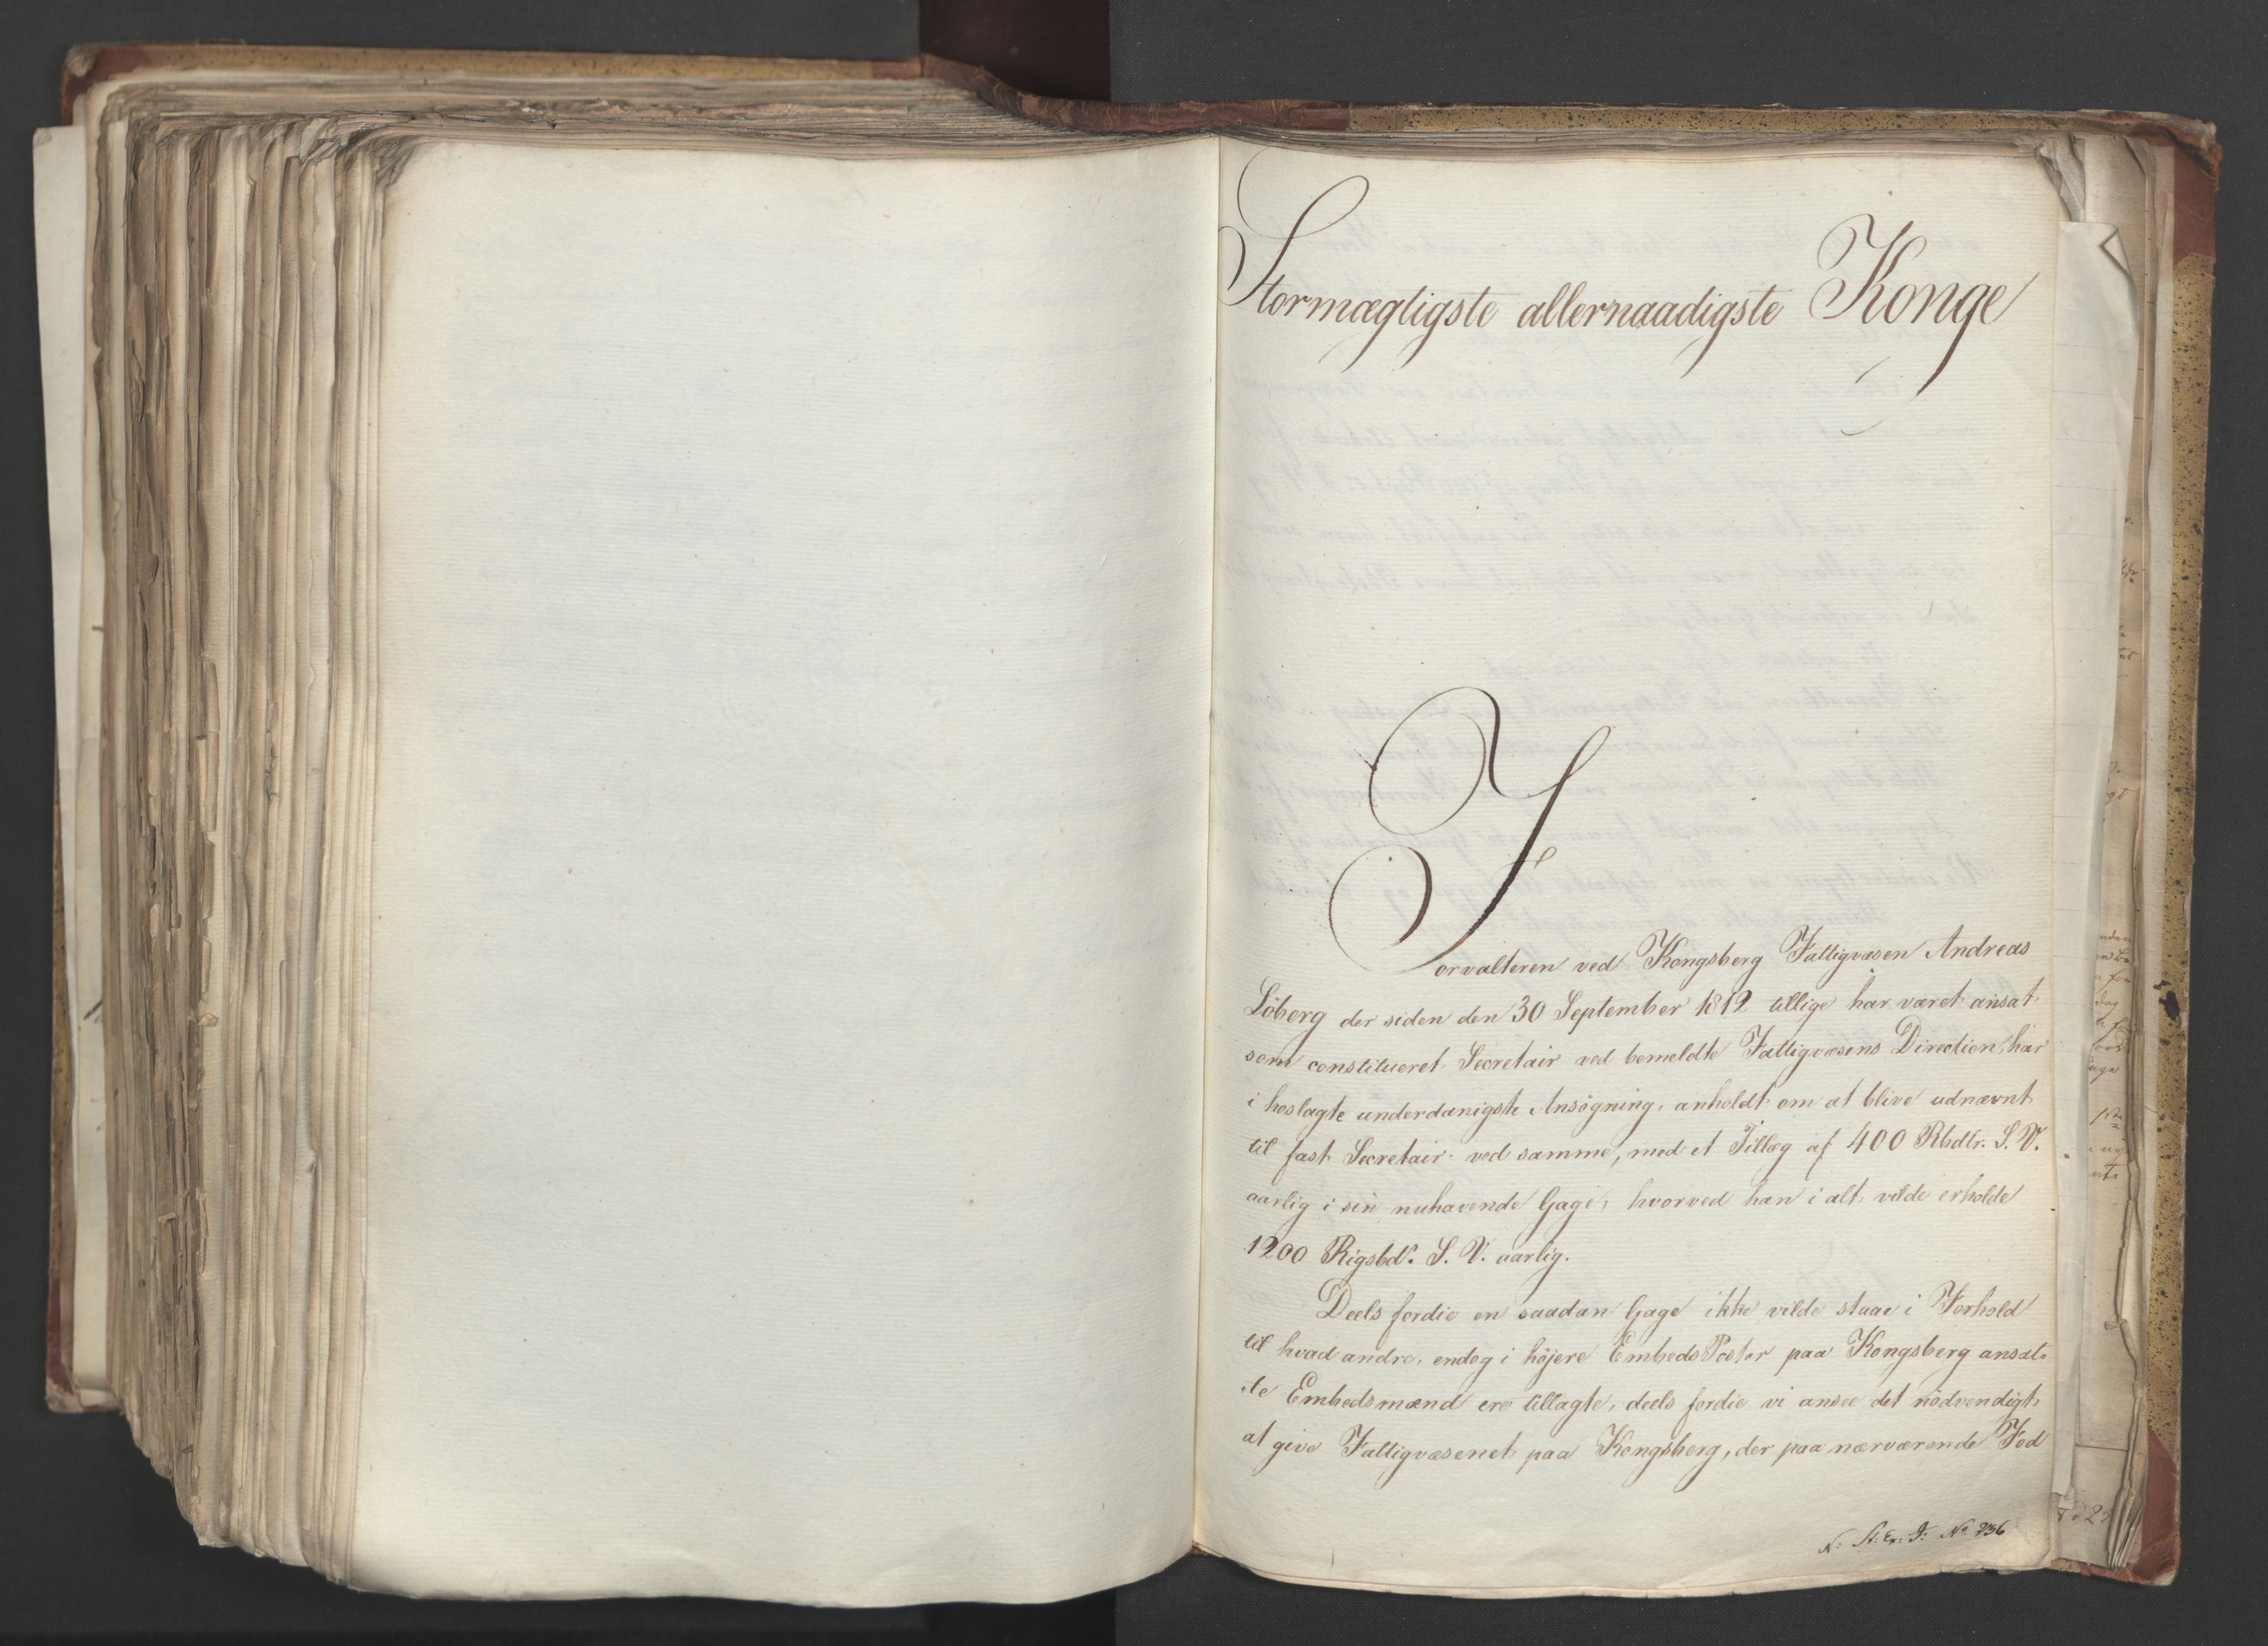 Stormægtigste allernaadigste Konge
Forvalteren ved Kongsberg Fattigvæsen Andreas
Löberg der siden den 30 September 1812 tillige har været ansat
som constitueret Secretair ved bemeldte Fattigvæsens Direction, har
i hoslagte underdanigste Ansögning, anholdt om at blive udnævnt
til fast Secretair ved samme, med et Tillæg af 400 Rbdlr. S. V.
aarlig i sin nuhavende Gage, hvorved han i alt vilde erholde
1200 Rigsbdr. S. V. aarlig.
Deels fordie en saadan Gage ikke vilde staae i Forhold
til hvad andre, endog i höjere Embeds Poster paa Kongsberg ansat-
te Embedsmænd ere tillagte, deels fordie vi ansee det nödvendigt
at give Fattigvæsenet paa Kongsberg, der paa nærværende Fod
No 236